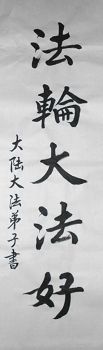 法輪大法好
大陆大法弟子書